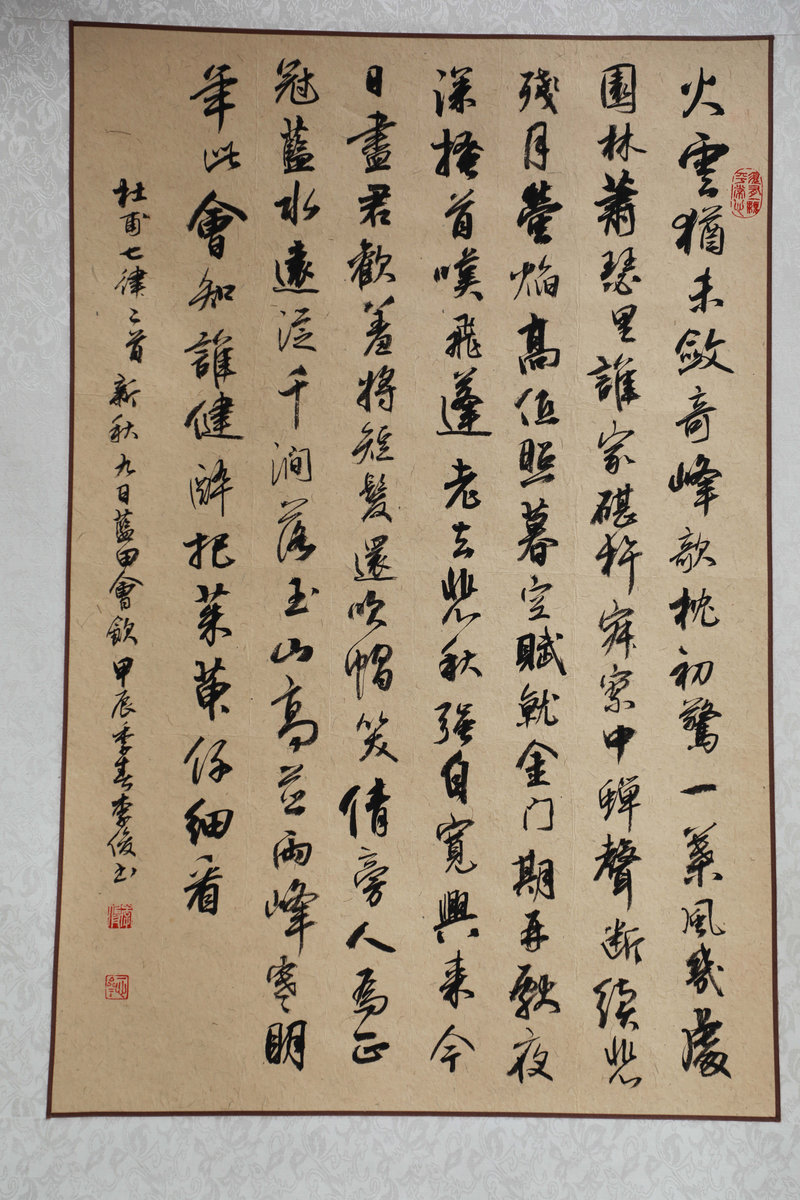 火雲猶未斂奇峰欹枕初驚一葉風幾處
園林蕭瑟里誰家碪杵寂寥中蟬聲断續悲
殘月螢焰高低照暮空賦就金门期再献夜
深搔首嘆飛蓬老去悲秋強自寬興来今
日盡君歡羞將短髮還吹帽笑倩旁人為正
冠藍水遠從千澗落玉山高並兩峰寒明
年此會知誰健醉把茱萸仔細看
杜甫七律二首新秋九日藍田會飲甲辰季春李俊书